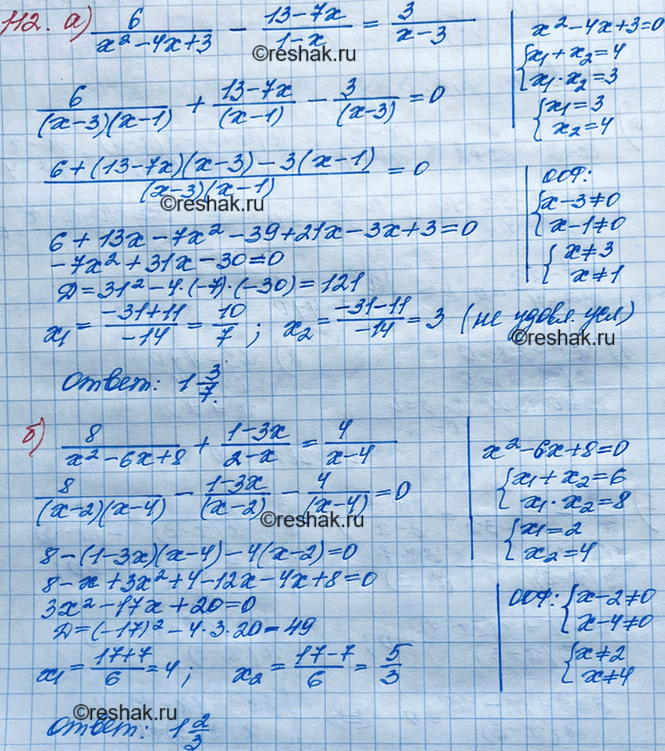 112. а) 6/(x²-4x+3) - (13-7x)/(1-x) = 3/(x-3)
x²-4x+3=0
{x₁+x₂=4
x₁·x₂=3
{x₁=3
x₂=4
©reshak.ru
6/((x-3)(x-1)) + (13-7x)/(x-1) - 3/(x-3) = 0
(6+(13-7x)(x-3)-3(x-1))/((x-3)(x-1)) = 0
©reshak.ru
ООФ:
{x-3≠0
x-1≠0
{x≠3
x≠1
6+13x-7x²-39+21x-3x+3=0
-7x²+31x-30=0
Д=31²-4·(-7)·(-30)=121
x₁=(-31+11)/(-14)=10/7; x₂=(-31-11)/(-14)=3 (не удовл. усл)
Ответ: 1 3/7.
©reshak.ru
б) 8/(x²-6x+8) + (1-3x)/(2-x) = 4/(x-4)
x²-6x+8=0
{x₁+x₂=6
x₁·x₂=8
{x₁=2
x₂=4
8/((x-2)(x-4)) - (1-3x)/(x-2) - 4/(x-4) = 0
©reshak.ru
8-(1-3x)(x-4)-4(x-2)=0
8-x+3x²+4-12x-4x+8=0
3x²-17x+20=0
Д=(-17)²-4·3·20=49
ООФ: {x-2≠0
x-4≠0
{x≠2
x≠4
x₁=(17+7)/6=4; x₂=(17-7)/6=5/3
©reshak.ru
Ответ: 1 2/3